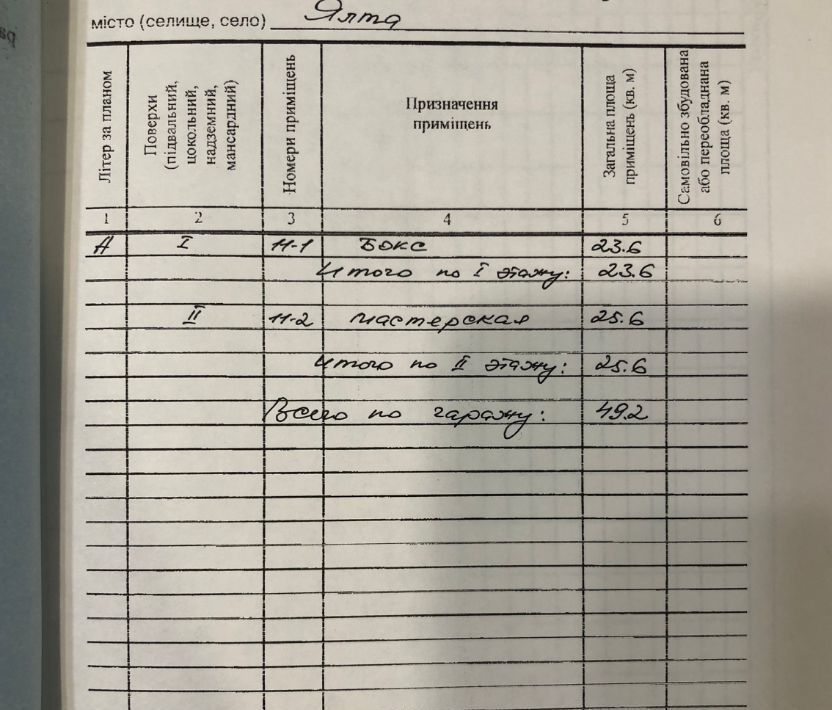 місто (селище, село) Ялта
Літер за планом
Поверхи
(підвальний,
цокольний,
надземний,
мансардний)
Номери приміщень
Призначення
приміщень
Загальна площа
приміщень (кв. м)
Самовільно збудована
або переобладнана
площа (кв. м)
1 2 3 4 5 6
А I Н-1 Бокс 23.6
Итого по I этажу: 23.6
II Н-2 мастерская 25.6
Итого по II этажу: 25.6
Всего по гаражу: 49.2